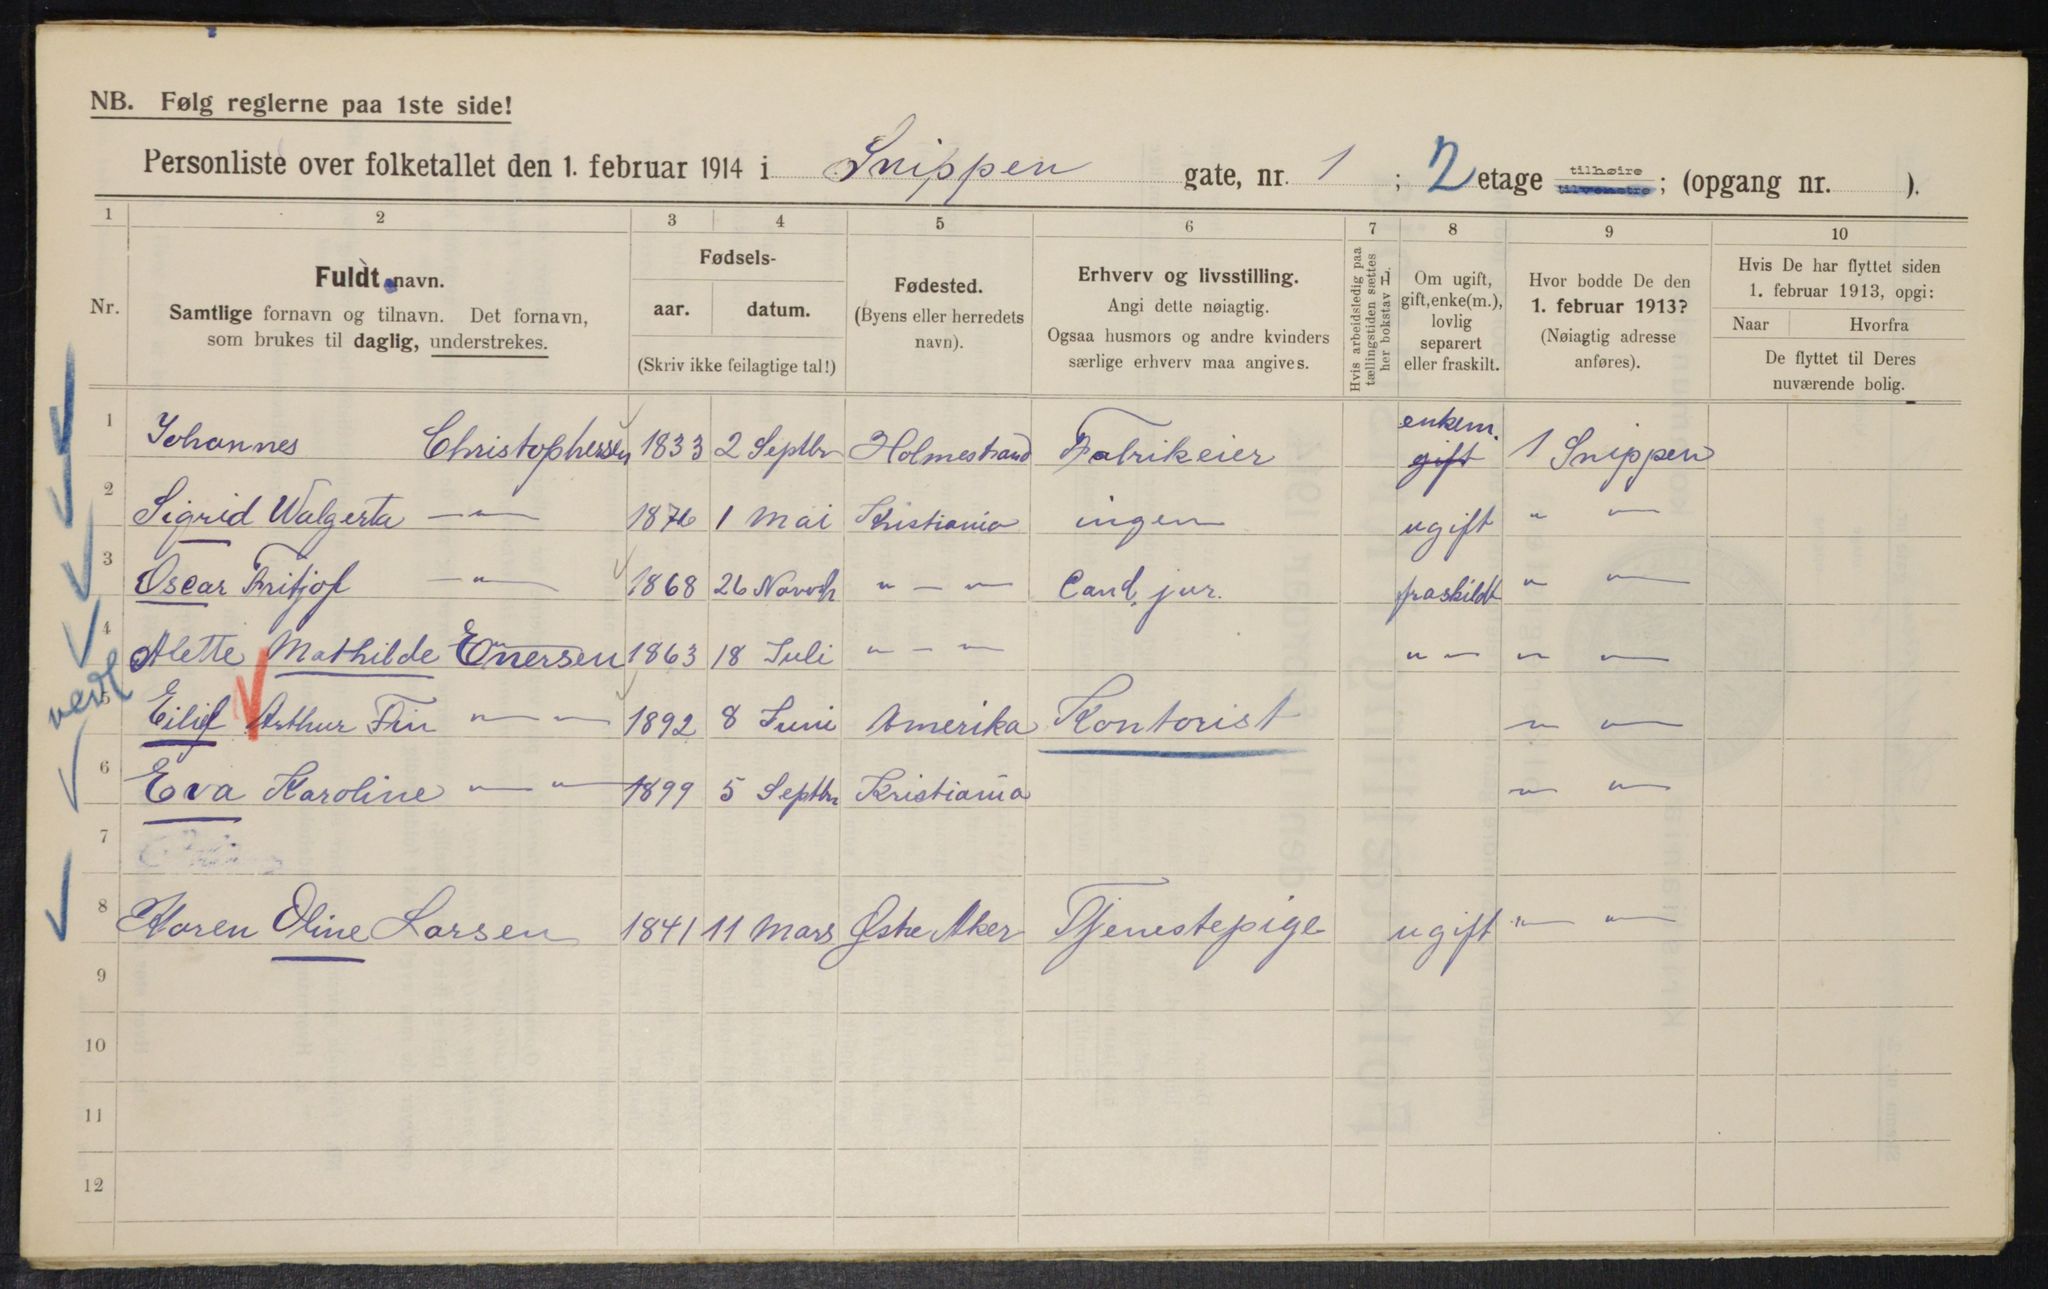 NB. Følg reglerne paa 1ste side!
Personliste over folketallet den 1. februar 1914 i Snippen gate, nr. 1 ; 2 etage tilhøire tilvenstre ; (opgang nr. ).
1 2 3 4 5 6 7 8 9 10
Nr.
Fuldt navn.
Samtlige fornavn og tilnavn. Det fornavn,
som brukes til daglig, understrekes.
Fødsels-
aar. datum.
(Skriv ikke feilagtige tal!)
Fødested.
(Byens eller herredets
navn).
Erhverv og livsstilling.
Angi dette nøiagtig.
Ogsaa husmors og andre kvinders
særlige erhverv maa angives.
Hvis arbeidsledig paa
tællingstiden sættes
her bokstav L.
Om ugift,
gift, enke(m.),
lovlig
separert
eller fraskilt.
Hvor bodde De den
1. februar 1913?
(Nøiagtig adresse
anføres).
Hvis De har flyttet siden
1. februar 1913, opgi:
Naar Hvorfra
De flyttet til Deres
nuværende bolig.
1 Johannes Christophersen 1833 2 Septbr Holmestrand Fabrikeier enkem. gift 1 Snippen
2 Sigrid Walgerta — " — 1876 1 Mai Kristiania ingen ugift " — " —
3 Oscar Fritjof — " — 1868 26 Novbr " — " Cand. jur. fraskildt " — " —
4 Alette Mathilde Enersen 1863 18 Juli " — " " — " — " —
5 Eilif Arthur Fin — " — " — 1892 8 Juni Amerika Kontorist — " — " —
6 Eva Karoline — " — " — 1899 5 Septbr Kristiania — " — " —
7
8 Karen Oline Larsen 1841 11 Mars Østre Aker Tjenestepige ugift " — " —
9
10
11
12